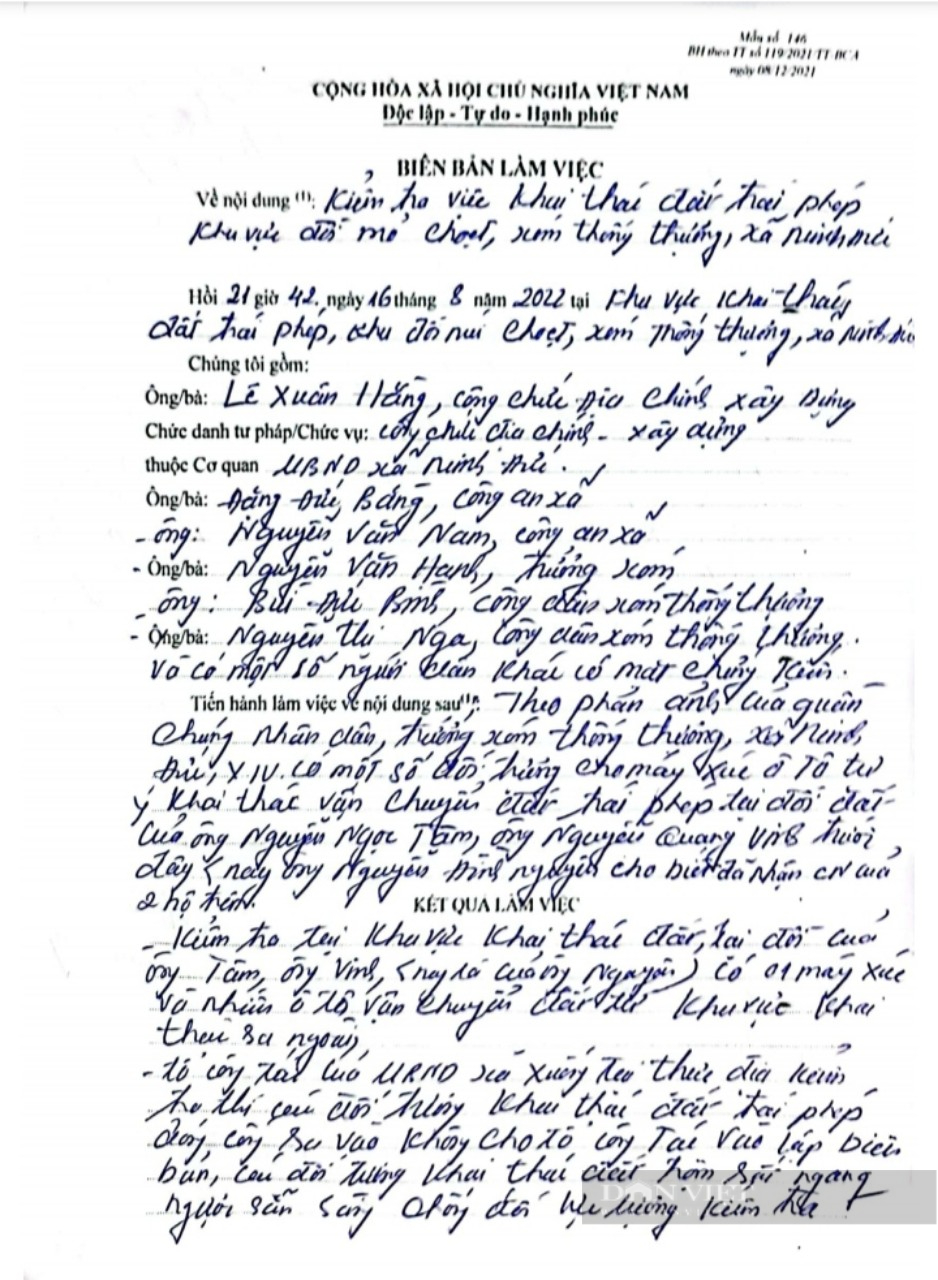 Mẫu số 146
BH theo TT số 119/2021/TT-BCA
ngày 08/12/2021
CỘNG HÒA XÃ HỘI CHỦ NGHĨA VIỆT NAM
Độc lập - Tự do - Hạnh phúc
BIÊN BẢN LÀM VIỆC
Về nội dung (1): Kiểm tra việc khai thác đất trái phép
Khu vực đồi mỏ Choẹt, xóm thống thượng, xã Ninh Đức
Hồi 21 giờ 42, ngày 16 tháng 8 năm 2022 tại Khu vực khai thác
đất trái phép, khu đồi núi Choẹt, xóm Thống thượng, xã Ninh Đức
Chúng tôi gồm:
Ông/bà: Lê Xuân Hằng, công chức Địa Chính xây Dựng
Chức danh tư pháp/Chức vụ: công chức địa chính - xây dựng
thuộc Cơ quan UBND xã Ninh Đức.
Ông/bà: Đặng Đức Bằng, công an xã
- ông: Nguyễn Văn Nam, công an xã
- Ông/bà: Nguyễn Văn Hạnh, trưởng xóm
- ông: Bùi Đức Bình, công dân xóm thống thượng
- Ông/bà: Nguyễn thị Nga, công dân xóm thống thượng.
Và có một số người dân khác có mặt chứng kiến.
Tiến hành làm việc về nội dung sau(1): Theo phản ánh của quần
chúng nhân dân, trưởng xóm thống thượng, xã Ninh
Đức, có một số đối tượng cho máy xúc ô Tô tự
ý khai thác vận chuyển đất trái phép tại đồi đất
của ông Nguyễn Ngọc Tâm, ông Nguyễn Quang Vinh trước
đây (nay ông Nguyễn Đình nguyên cho biết đã nhận CN của
2 hộ trên.
KẾT QUẢ LÀM VIỆC
- Kiểm tra tại Khu vực khai thác đất, tại đồi của
ông Tâm, ông Vinh, (nay là của ông Nguyên) có 01 máy xúc
và nhiều ô tô vận chuyển đất từ khu vực khai
thác ra ngoài,
- tổ công tác của UBND xã xuống tại thực địa kiểm
tra thì các đối tượng khai thác đất trái phép
đóng cổng ra vào không cho tổ công Tác vào lập biên
bản, các đối tượng khai thác đất
người sẵn sàng chống đối lực lượng kiểm tra
DÂN VIỆT